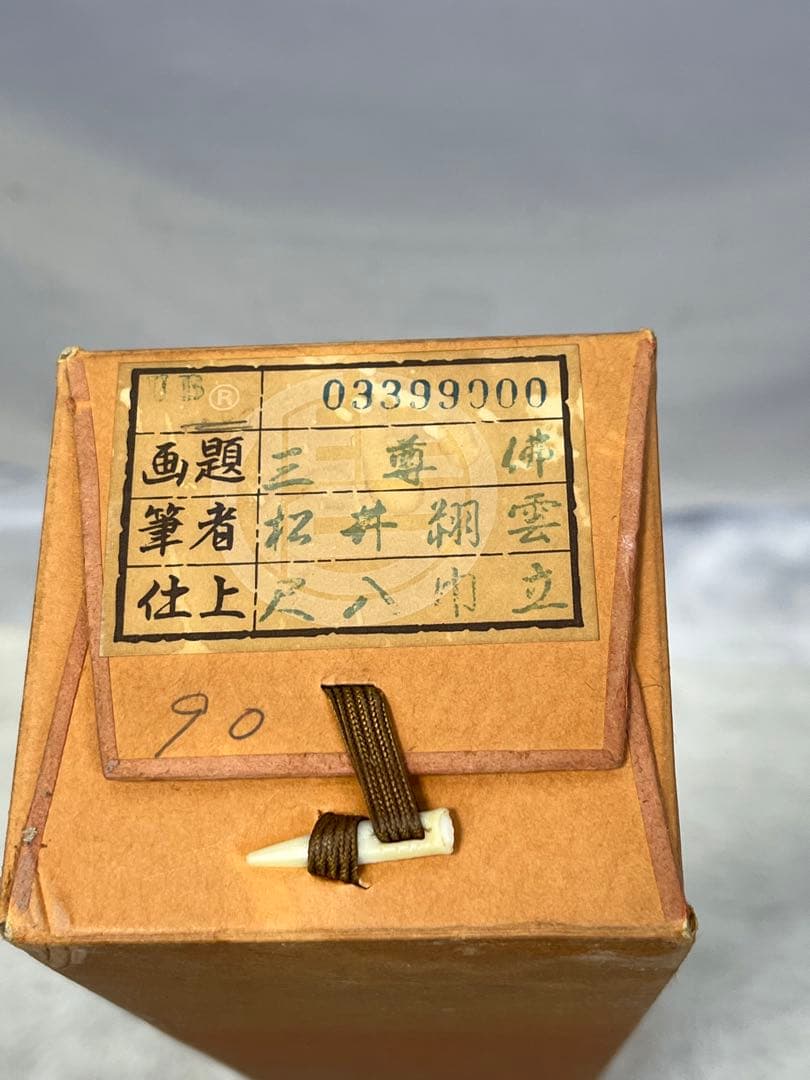 B® 03399000
画題 三尊佛
筆者 松井翔雲
仕上 尺八巾立
90